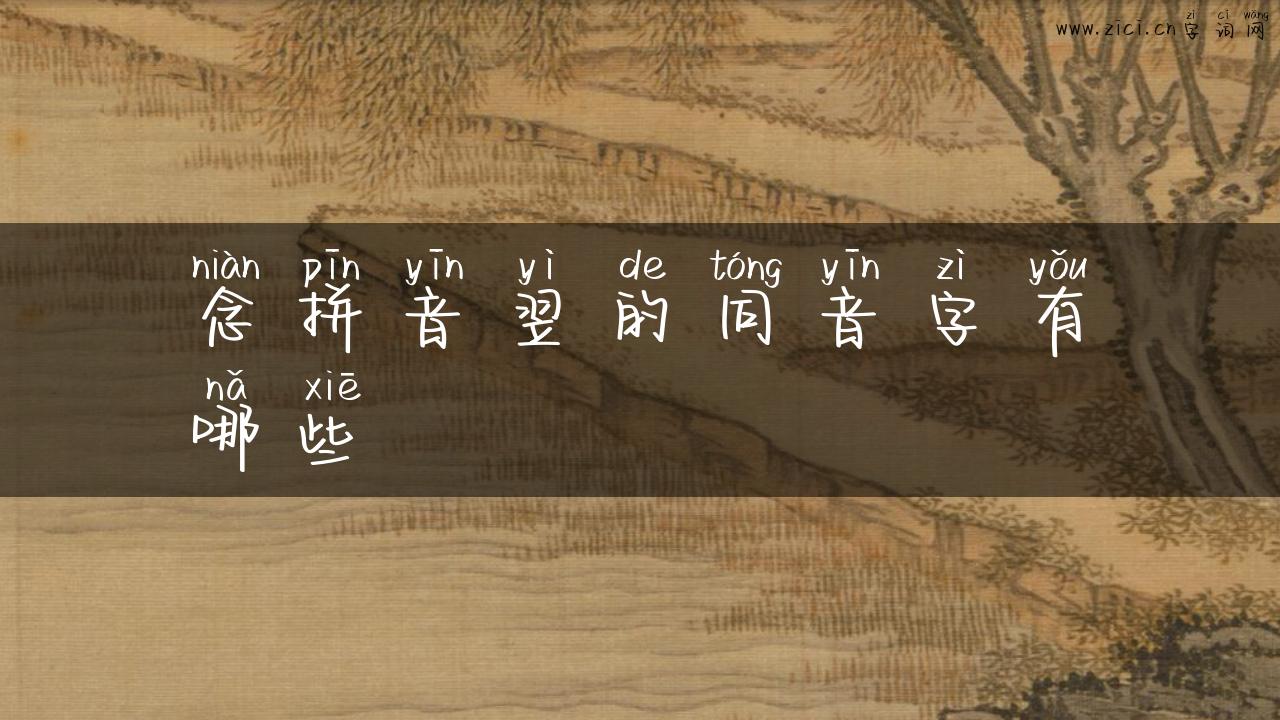 zì cí wǎng
www.zici.cn字词网
niàn pīn yīn yì de tóng yīn zì yǒu
念拼音翌的同音字有
nǎ xiē
哪些